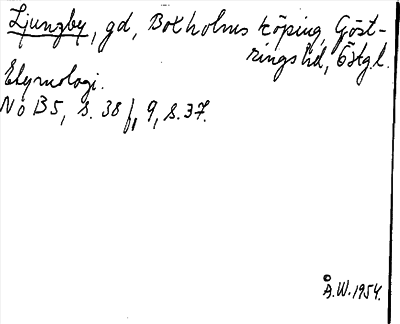 Ljunzby, gd, Botholms köping, Göst-
rings hd, Östgl.
Etymologi.
No B5, s. 38 f, 9, s. 37.
Å.W. 1954.